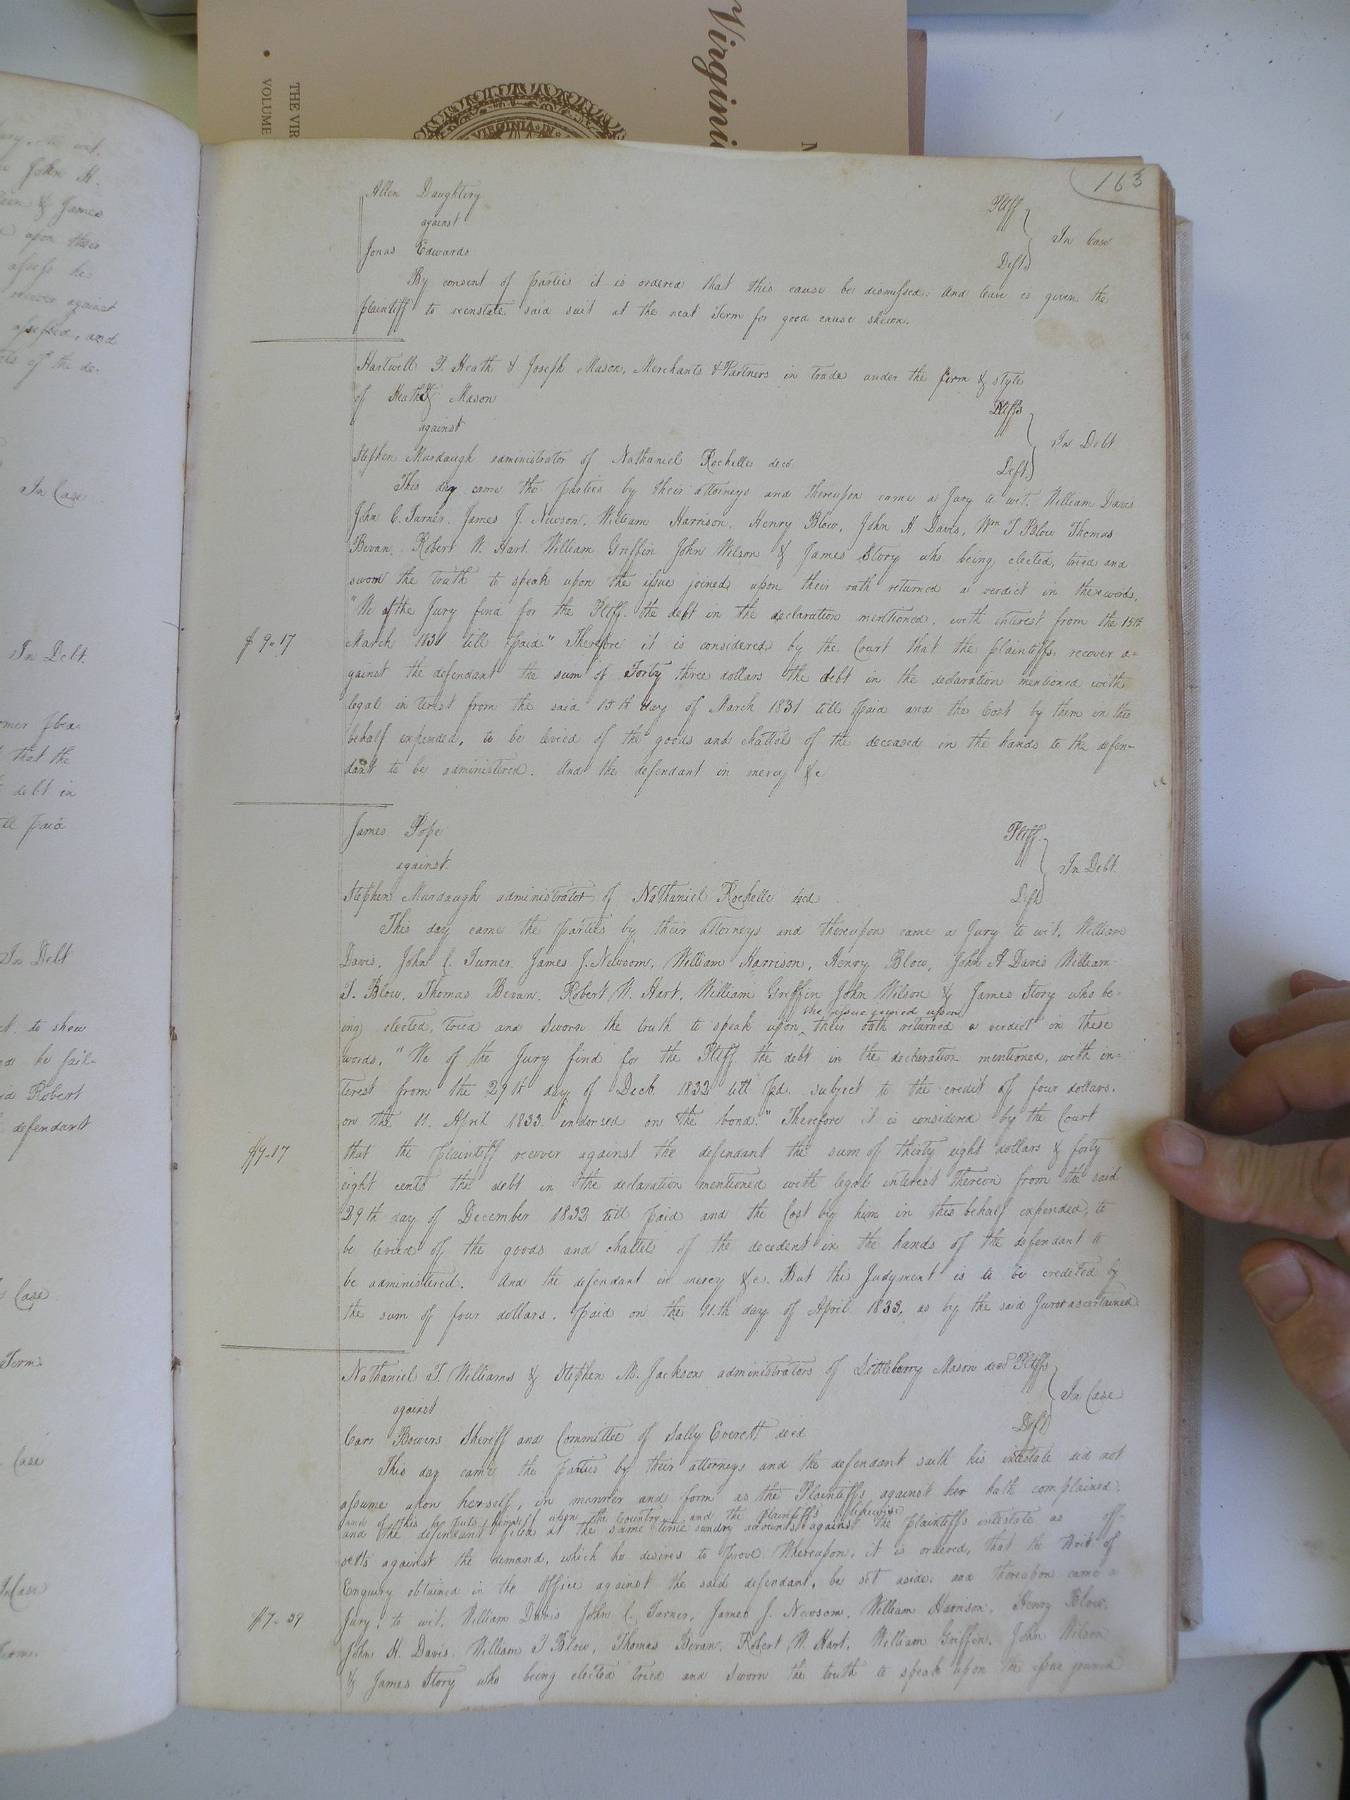 Virgini
THE VIR
VOLUME
VIRGINIA
163
Allen Daughtry Pltff
against In Case
Jonas Edwards Deft
By consent of parties it is ordered that this cause be dismissed. And leave is given the
plaintiff to reinstate said suit at the next Term for good cause shewn.
Hartwell T. Heath & Joseph Mason, Merchants & Partners in trade under the firm & style
of Heath & Mason Pltffs
against In Debt
Stephen Murdaugh administrator of Nathaniel Rochelle decd. Deft.
This day came the parties by their attorneys and thereupon came a Jury to wit, William Davis
John C. Turner, James J. Newsom, William Harrison, Henry Blow, John H Davis, Wm T Blow Thomas
Bevan, Robert W. Hart, William Griffin John Wilson & James Story who being elected, tried and
sworn the truth to speak upon the issue joined upon their oath returned a verdict in these words,
"We of the Jury find for the Pltff. the debt in the declaration mentioned, with interest from the 15th
$9.17 March 1831 till paid" Therefore it is considered by the Court that the plaintiffs recover a=
gainst the defendant the sum of Forty three dollars the debt in the declaration mentioned with
legal interest from the said 15th day of March 1831 till paid and the Cost by them in this
behalf expended, to be levied of the goods and chattels of the deceased in the hands to the defen-
dant to be administered. And the defendant in mercy &c
James Pope Pltff.
against In Debt
Stephen Murdaugh administrator of Nathaniel Rochelle decd Deft
This day came the parties by their attorneys and thereupon came a Jury to wit, William
Davis, John C. Turner James J. Newsom, William Harrison, Henry Blow, John H Davis William
T. Blow, Thomas Bevan, Robert W. Hart, William Griffin John Wilson & James Story who be-
the issue joined upon
ing elected, tried and sworn the truth to speak upon their oath returned a verdict in these
words, "We of the Jury find for the Pltff the debt in the declaration mentioned, with in-
terest from the 29th day of Decb. 1832 till pd. subject to the credit of four dollars.
on the 11. April 1833. indorsed on the bond." Therefore it is considered by the Court
$9.17 that the plaintiff recover against the defendant the sum of thirty eight dollars & forty
eight cents the debt in the declaration mentioned with legal interest thereon from the said
29th day of December 1832 till paid and the Cost by him in this behalf expended, to
be levied of the goods and chattels of the decedent in the hands of the defendant to
be administered. And the defendant in mercy &c. But this Judgment is to be credited by
the sum of four dollars, paid on the 11th day of April 1833, as by the said Juror ascertained
Nathaniel T. Williams & Stephen M. Jackson administrators of Littleberry Mason decd Pltffs
against In Case
Carr Bowers Sheriff and Committee of Sally Everett decd Deft
This day came the parties by their attorneys and the defendant saith his intestate did not
assume upon herself, in manner and form as the Plaintiffs against her hath complained,
and of this he puts himself upon the Country and the plaintiffs likewise
and the defendant filed at the same time sundry accounts against the plaintiffs intestate as off-
setts against the demand, which he desires to prove Whereupon, it is ordered, that the Writ of
Enquiry obtained in the Office against the said defendant, be set aside; and thereupon came a
$7.59 Jury, to wit, William Davis John C. Turner, James J. Newsom, William Harrison, Henry Blow,
John H. Davis, William T Blow, Thomas Bevan, Robert W. Hart, William Griffin, John Wilson
& James Story who being elected tried and sworn the truth to speak upon the issue joined